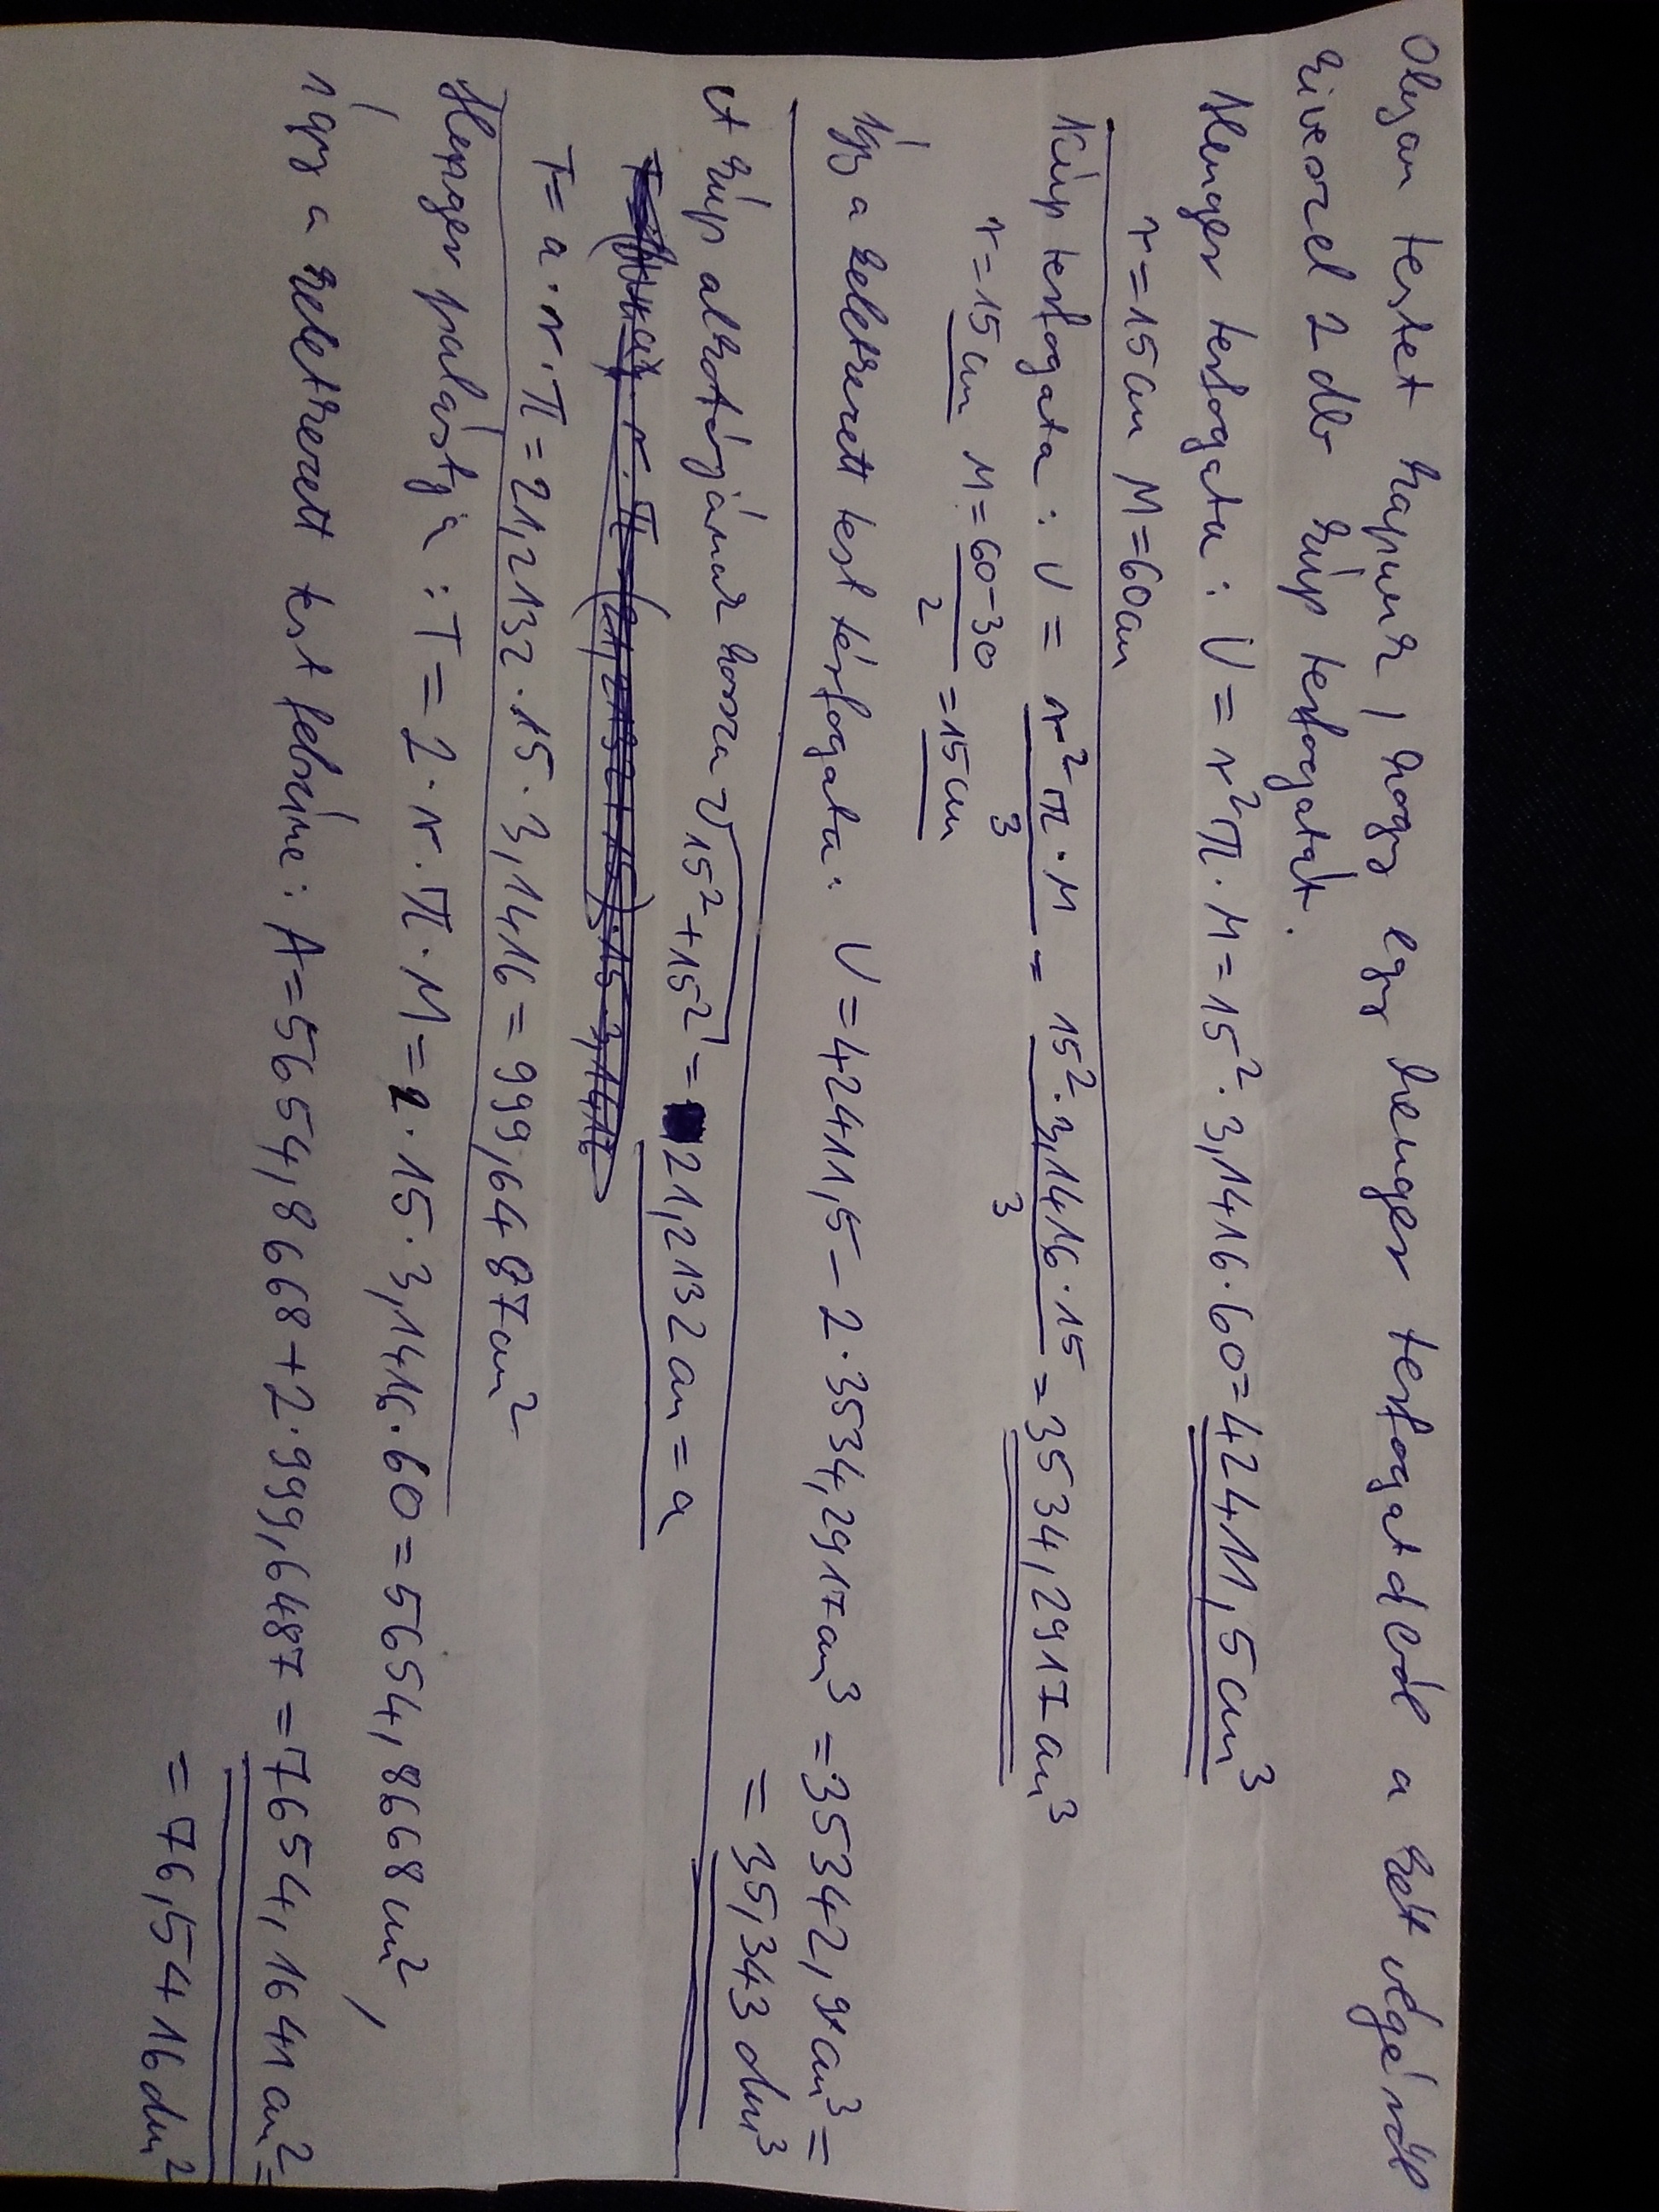 Olyan testet kapunk, hogy egy henger térfogatából a két végéről
kivonzol 2 db kúp térfogatát.
Henger térfogata: V = r²π·M = 15²·3,1416·60 = 42411,5 cm³
r = 15 cm M = 60 cm
Kúp térfogata: V = r²π·M / 3 = 15²·3,1416·15 / 3 = 3534,2917 cm³
r = 15 cm M = 60-30 / 2 = 15 cm
Így a keletkezett test térfogata: V = 42411,5 - 2·3534,2917 cm³ = 35342,9 cm³ =
= 35,343 dm³
A kúp alkotójának hossza √15²+15² = 21,2132 cm = a
T = a·r·π = 21,2132·15·3,1416 = 999,6487 cm²
Henger palástja: T = 2·r·π·M = 2·15·3,1416·60 = 5654,8668 cm²,
így a keletkezett test felszíne: A = 5654,8668 + 2·999,6487 = 7654,1641 cm² =
= 76,5416 dm²